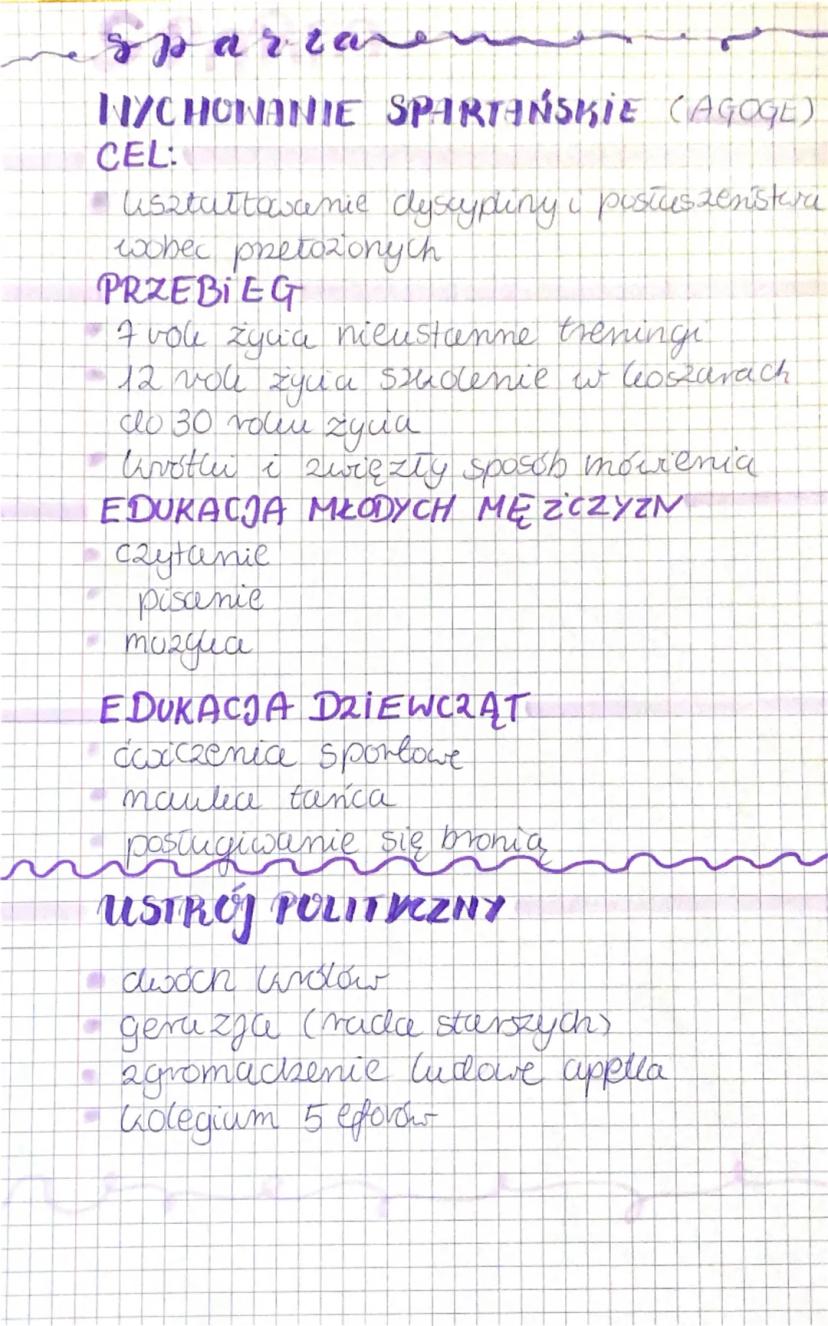 Sparta
WYCHOWANIE SPARTAŃSKIE (AGOGE)
CEL:
kształtowanie dyscypliny i posłuszeństwa
wobec przełożonych
PRZEBiEG
7 rok życia nieustanne treningi
12 rok życia szkolenie w koszarach
do 30 roku życia
krótki i zwięzły sposób mówienia
EDUKACJA MŁODYCH MĘŻCZYZN
czytanie
pisanie
muzyka
EDUKACJA DZiEWCZĄT
ćwiczenia sportowe
nauka tańca
posługiwanie się bronią
USTRÓJ POLITYCZNY
dwóch królów
geruzja (rada starszych)
zgromadzenie ludowe appella
kolegium 5 eforów